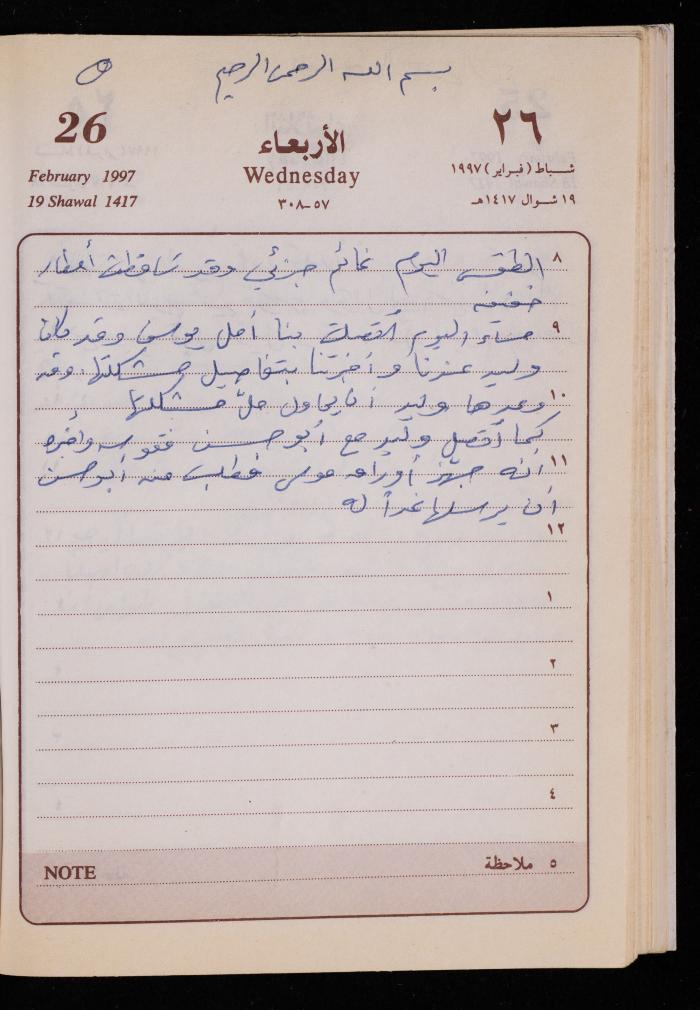 بسم الله الرحمن الرحيم
26
٢٦
الأربعاء
Wednesday
٥٧-٣٠٨
February 1997
19 Shawal 1417
شباط (فبراير) ١٩٩٧
١٩ شوال ١٤١٧هـ
٨ الطقس اليوم غائم جزئي وقد تساقطت أمطار
خفيفة
٩ مساء اليوم اتصلت بنا أمل يوسف وقد كان
وليد عندنا وأخبرتنا بتفاصيل مشكلتها. وقد
١٠ وعدها وليد أن يحاول حل مشكلتها
كما أتصل وليد مع أبو حسن فقوسه وأخبره
١١ أنه جهّز أوراق موسى فطلب منه أبو حسن
أن يرسلها غداً له
١٢
١
٢
٣
٤
NOTE
٥ ملاحظة